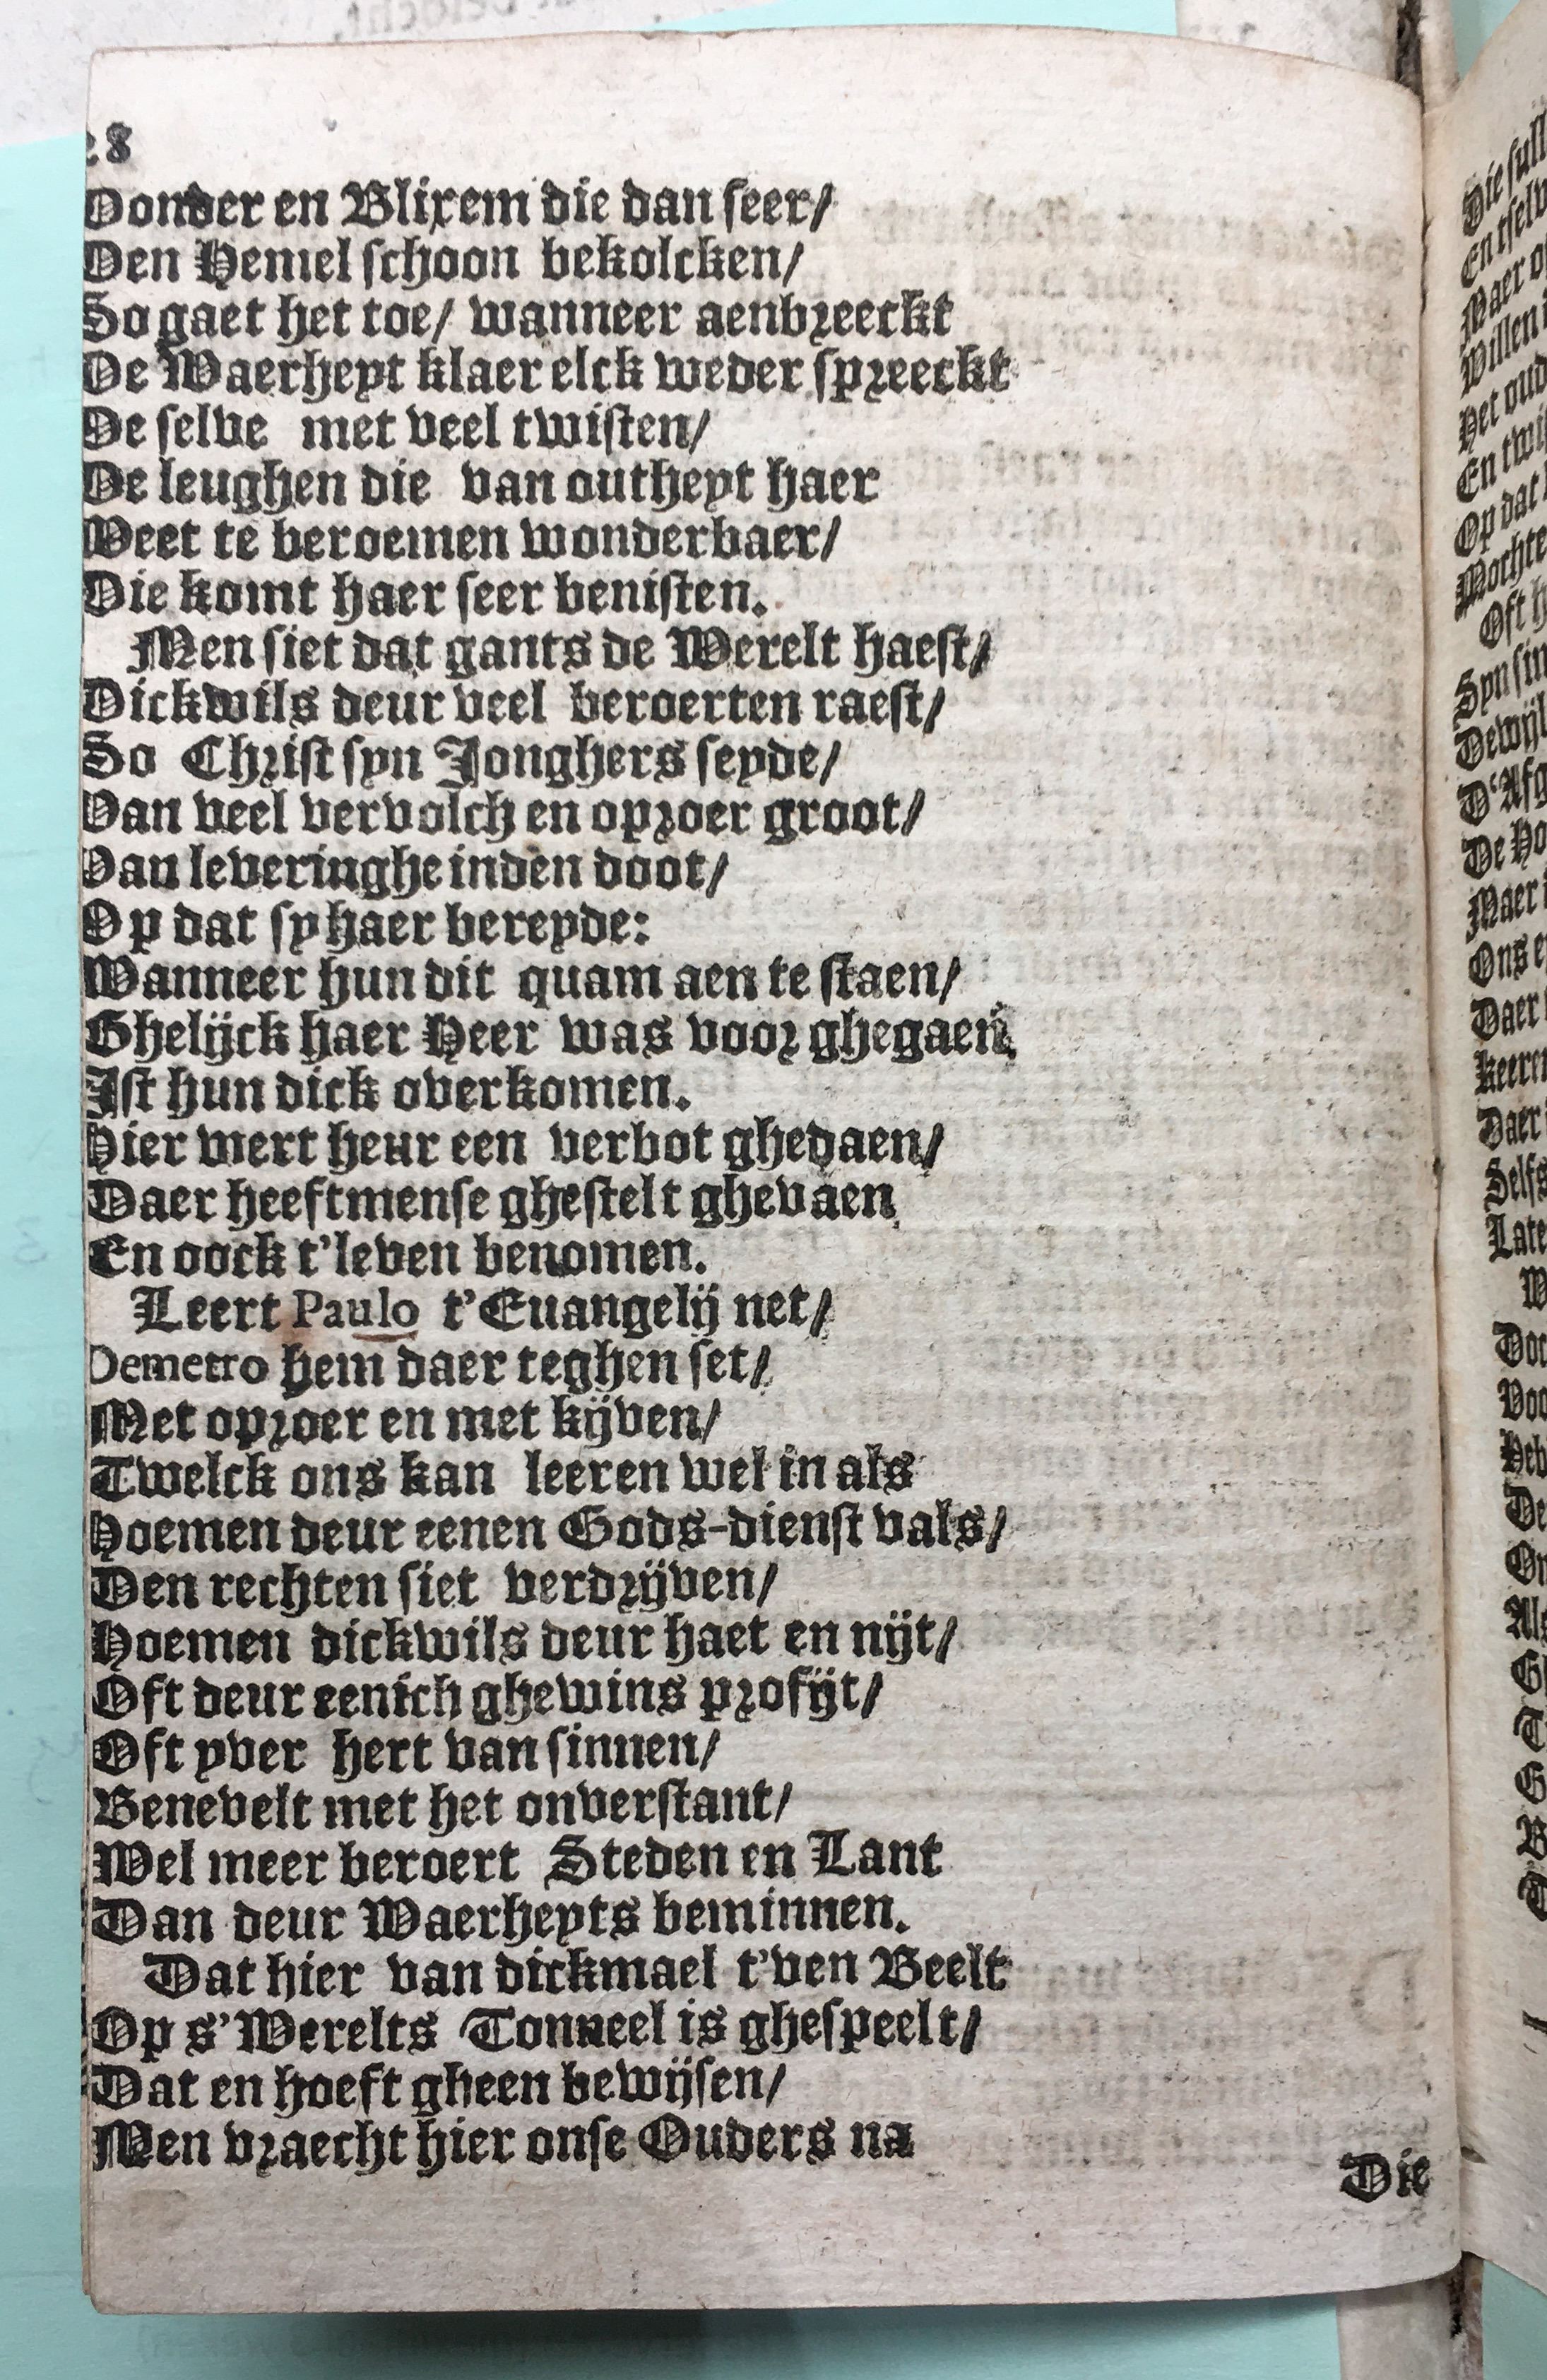 28
Donder en Blixem die dan seer/
Den Hemel schoon bekolcken/
So gaet het toe/ wanneer aenbreeckt
De Waerheyt klaer elck weder spreeckt
De selve met veel twisten/
De leughen die van outheyt haer
Weet te beroemen wonderbaer/
Die komt haer seer benisten.
Men siet dat gants de Werelt haest/
Dickwils deur veel beroerten raest/
So Christ syn Jonghers seyde/
Van veel vervolch en oproer groot/
Van leveringhe inden doot/
Op dat sy haer bereyde:
Wanneer hun dit quam aen te staen/
Ghelijck haer Heer was voor ghegaen,
Ist hun dick overkomen.
Hier wert heur een verbot ghedaen/
Daer heeftmense ghestelt ghevaen
En oock t'leven benomen.
Leert Paulo t'Euangelij net/
Demetro hem daer teghen set/
Met oproer en met kijven/
Twelck ons kan leeren wel in als
Hoemen deur eenen Gods-dienst vals/
Den rechten siet verdrijven/
Hoemen dickwils deur haet en nijt/
Oft deur eenich ghewins profijt/
Oft yver hert van sinnen/
Benevelt met het onverstant/
Wel meer beroert Steden en Lant
Dan deur Waerheyts beminnen.
Dat hier van dickmael t'ven Beelt
Op s'Werelts Tonneel is ghespeelt/
Dat en hoeft gheen bewijsen/
Men vraecht hier onse Ouders na
Die